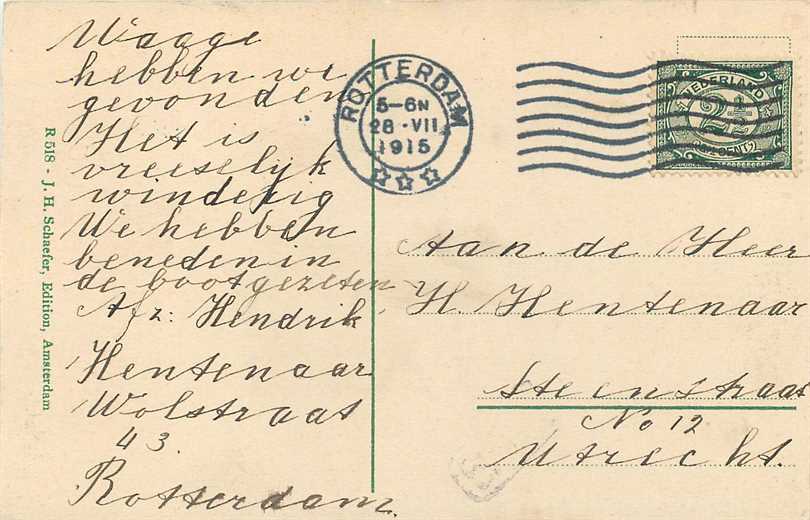 Waage
hebben we
gevonden
Het is
vreeselijk
winderig
We hebben
beneden in
de boot gezeten
Afz: Hendrik
Hentenaar
Wolstraat
43.
Rotterdam.
R 518 - J. H. Schaefer, Edition, Amsterdam
ROTTERDAM
5-6N
28·VII
1915
NEDERLAND
2½
CENT
Aan de Heer
H. Hentenaar
Steenstraat
No 12
Utrecht.